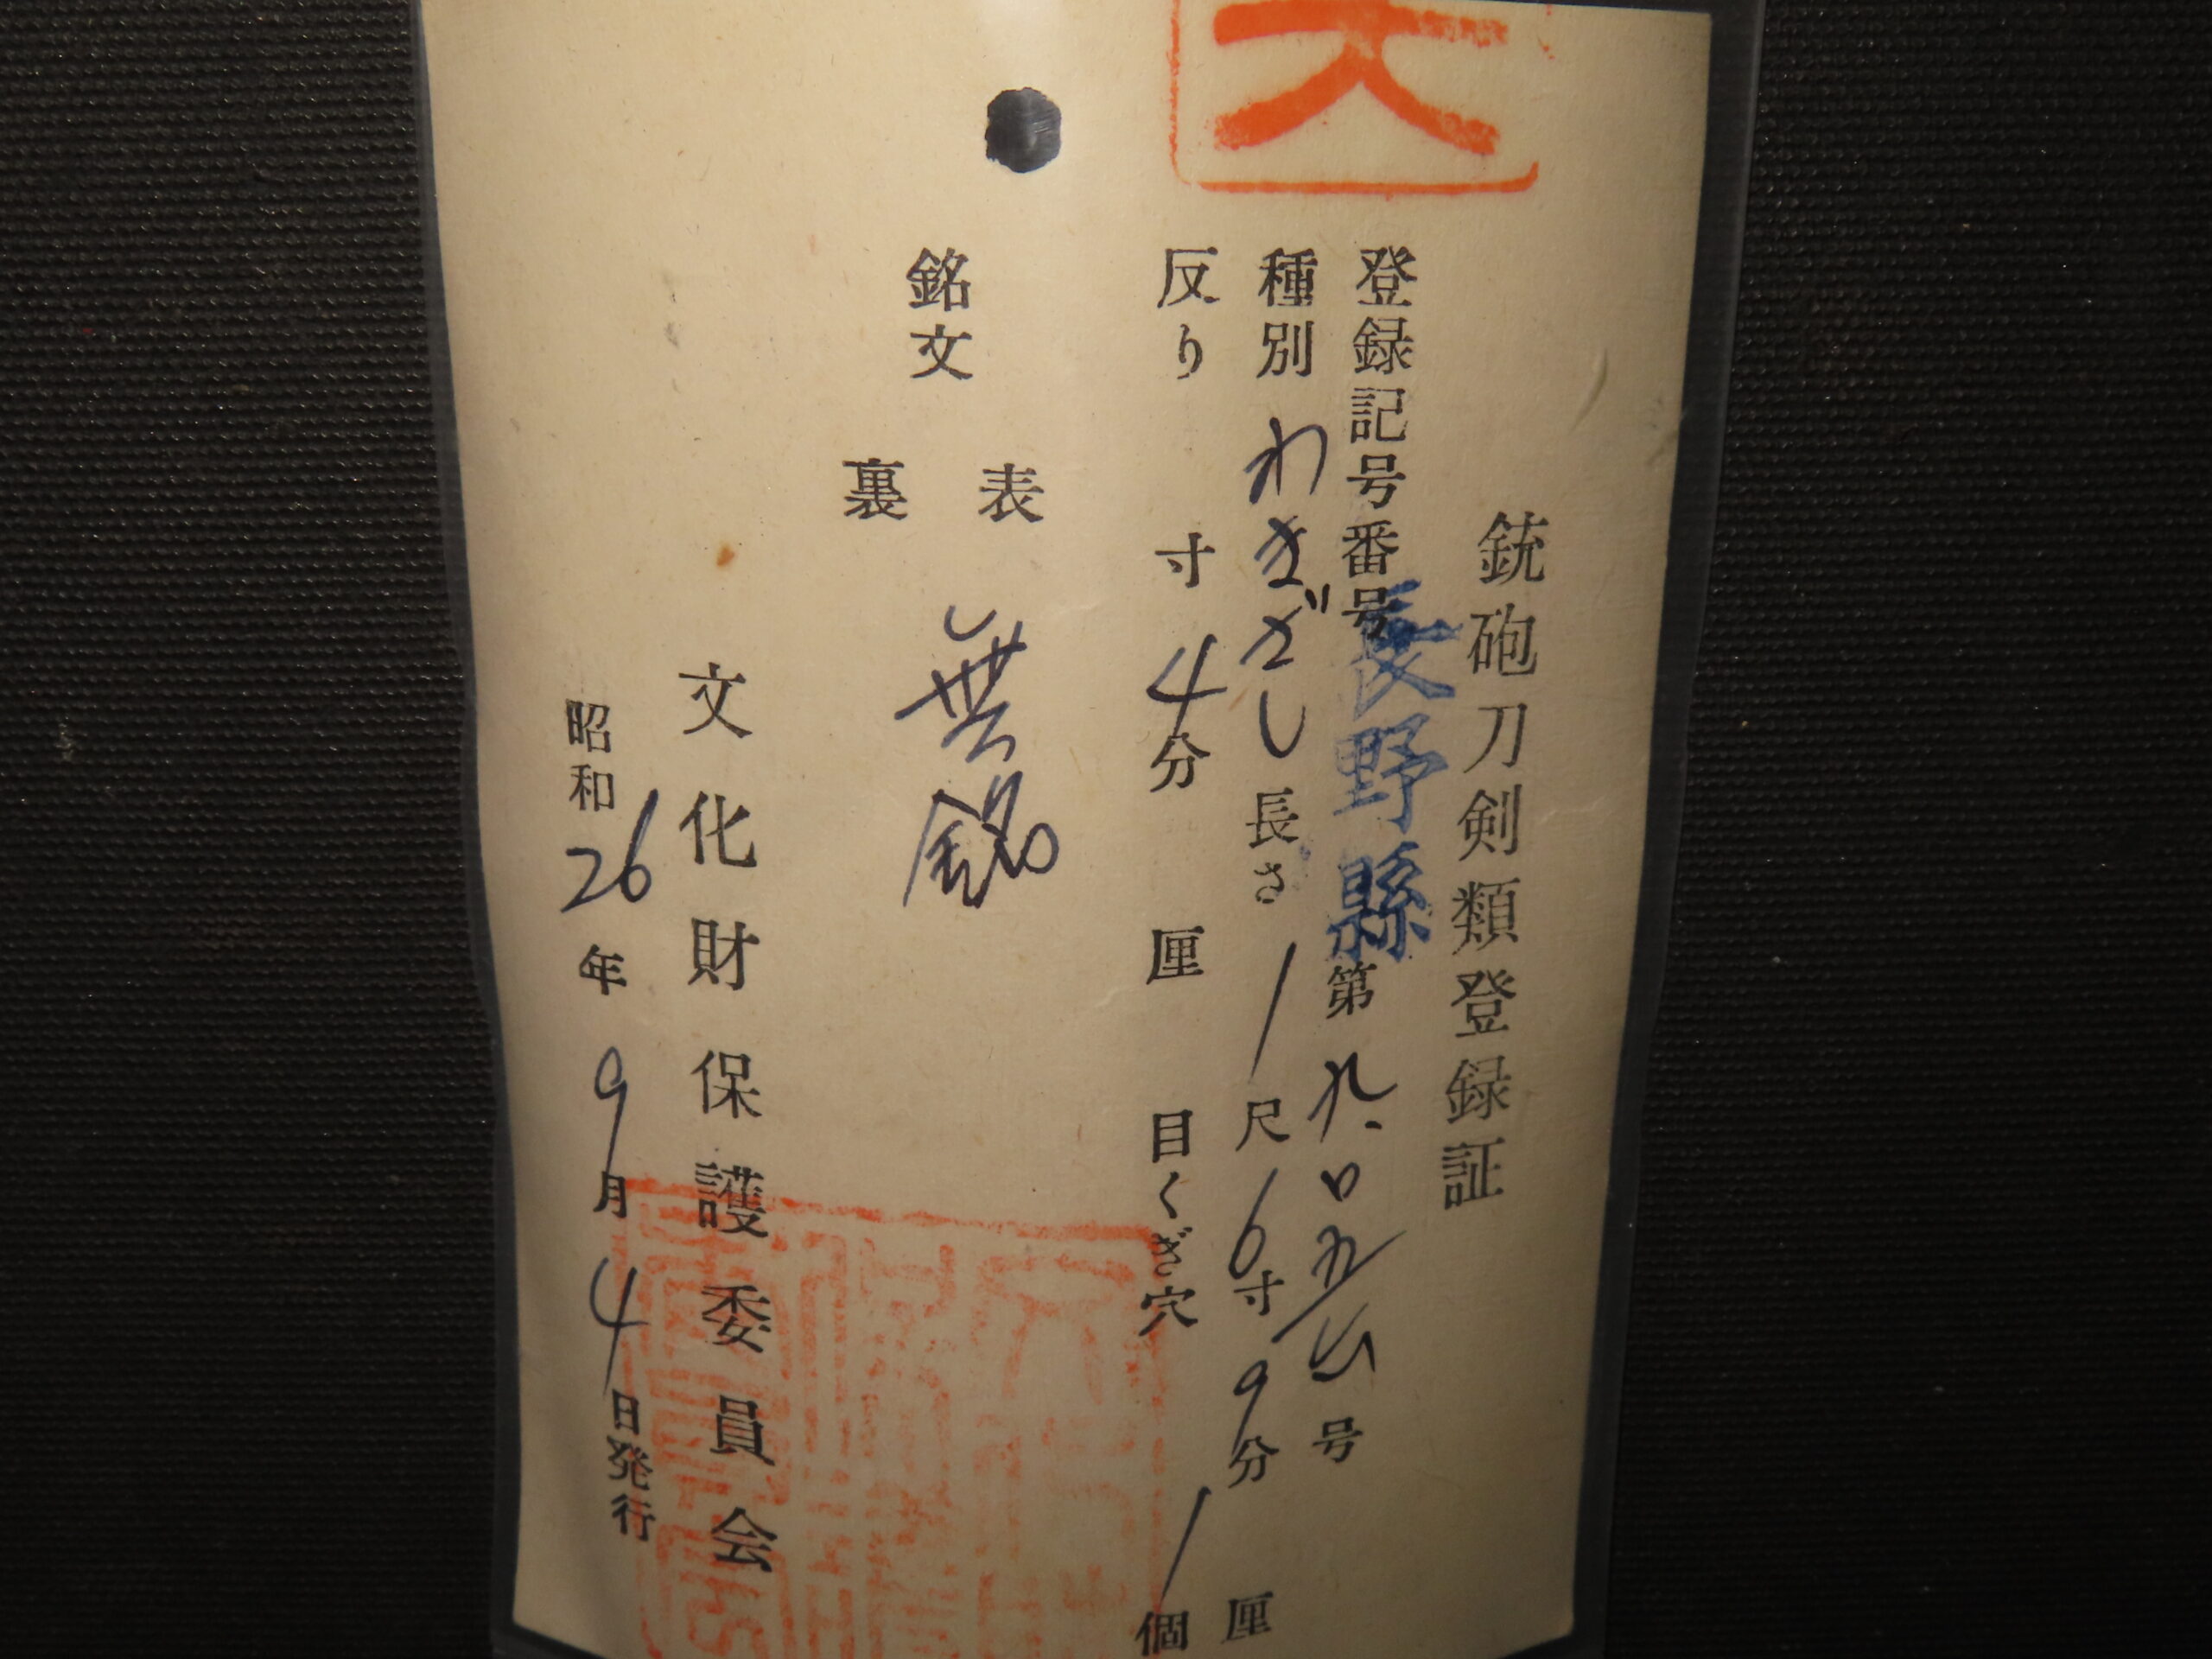 銃砲刀剣類登録証
登録記号番号 長野縣 第 九〇五 号
種別 わきざし 長さ 1尺6寸9分 厘
反り 寸4分 厘 目くぎ穴 1個
銘文 表 無銘
裏
文化財保護委員会
昭和26年9月4日発行